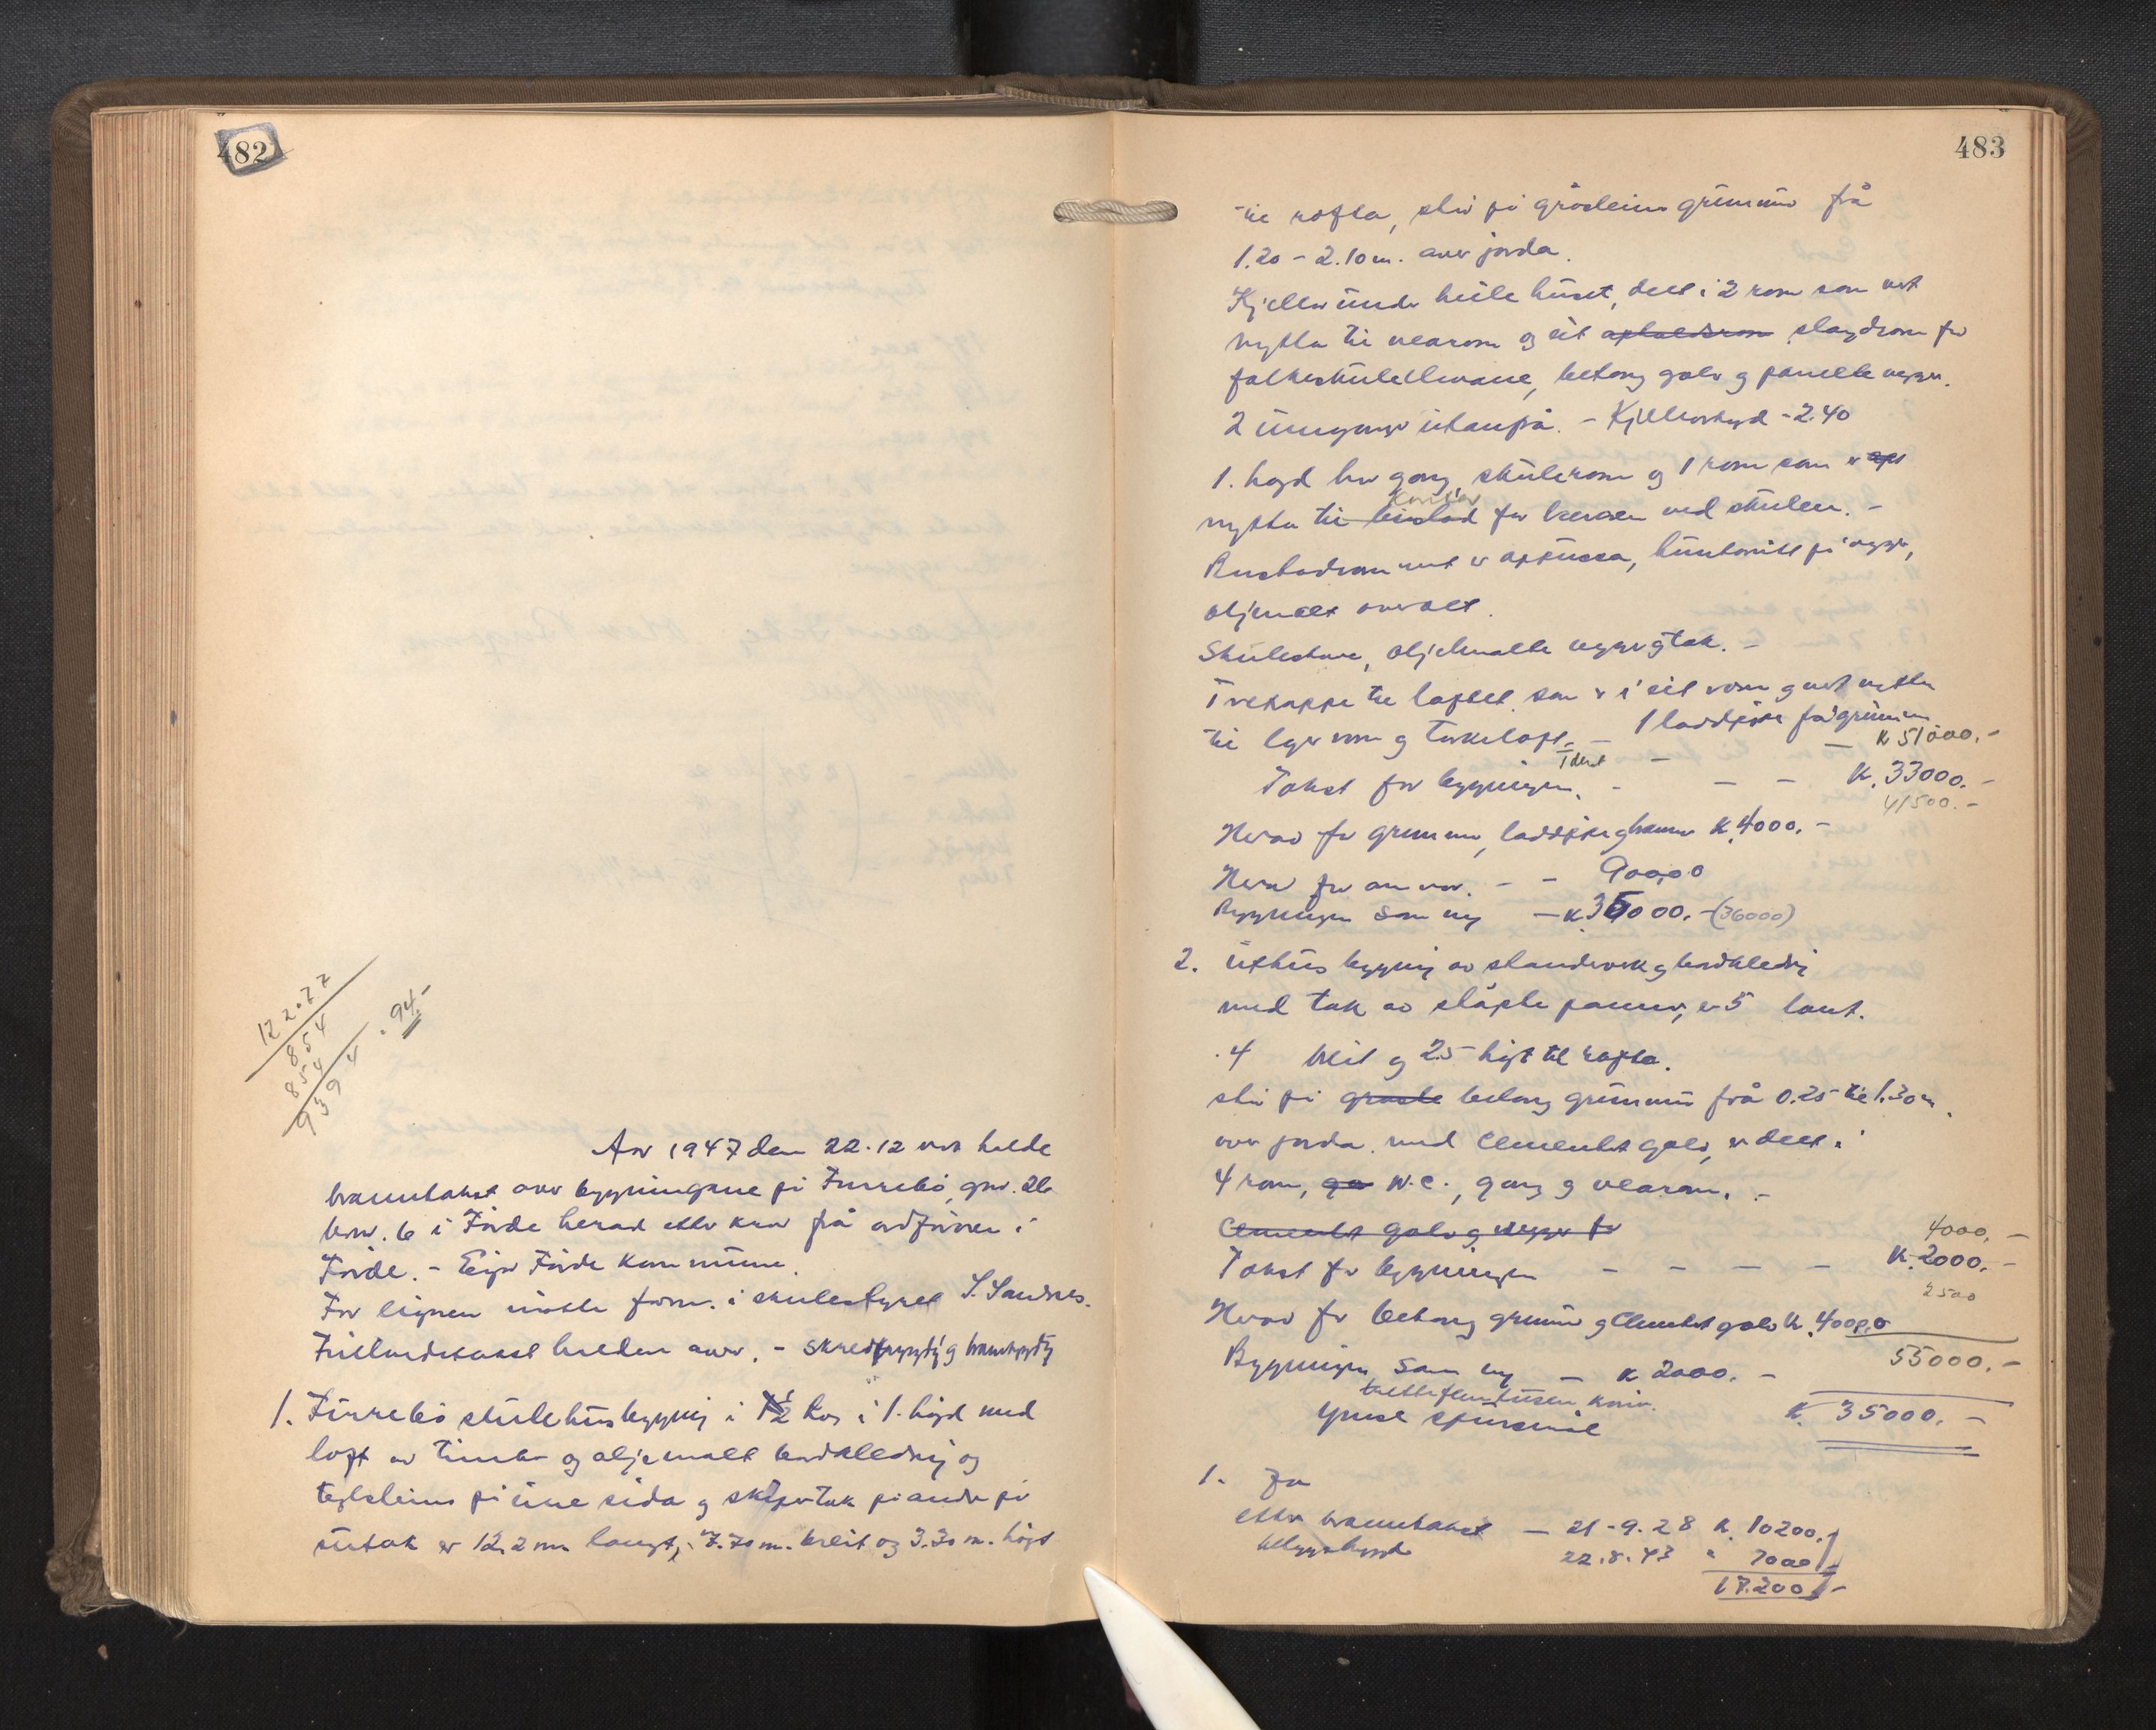 482
12 20.77
8 54
8 54
9 39 4 . 94.-
Aar 1947 den 22.12 var halde
branntakst over bygningane på Furrebø, gnr. 26
bnr. 6 i Førde herad etter krav frå ordføraren i
Førde. - Eigar Førde kommune.
For eigaren møtte form. i skulestyret S. Sandnes.
halden over. -
1. Furrebø skulehusbygning i 1 1/2 høg i 1. høgd med
loft av timber og oljemalt bordkledning og
teglsteins på eine sida og skifertak på andre på
sutak er 12.2 m langt, 7.70 m. breit og 3.30 m. høgt
483
til rafta, står på gråsteins grunnmur frå
1.20 - 2.10 m. over jorda.
Kjellar under heile huset, delt i 2 rom som vert
nytta til vearom og eit opholdsrom sløydrom for
folkeskuleelevane, betong golv og panelte vegger.
2 inngangar utanpå. - Kjellarhøgd - 2.40
1. høgd har gang, skulerom og 1 rom som er
kontor
nytta til bustad for læraren ved skulen. -
Bustadrommet er oppussa, huntonitt på vegger,
oljemalt overalt.
Skulestova, oljemalte vegger og tak. -
Tretrappe til loftet som er i eit rom og vert nytta
til lagerrom og tørkeloft. - 1 laddpipe frå grunnen
- K 51000.-
Takst for bygningen. - - - K. 33000.-
41500.-
Herav for grunnmur, laddpipe og K. 4000.-
Herav for - - 900,00
Bygningen som ny - K. 35000.- (36000)
2. Uthus bygning av standerverk og bordkledning
med tak av støypte pannar, er 5 langt.
4 breit og 2.5 høgt til rafta.
står på gråste betong grunnmur frå 0.25 til 1.30 m.
over jorda med Cementst golv, er delt i
4 rom, ga W.C., gang og vearom. -
Cementst golv og vegger for
4000.-
Takst for bygningen - - - - K. 2000.-
2500
Herav for betong grunnmur og Cementst golv K. 400,0
55000.-
Bygningen som ny - K 2000. -
K. 35000.-
Ymse spursmål
1. Ja
etter branntakst - 21-9.28 K. 10200.-
22.8.43 " 7000
17.200.-